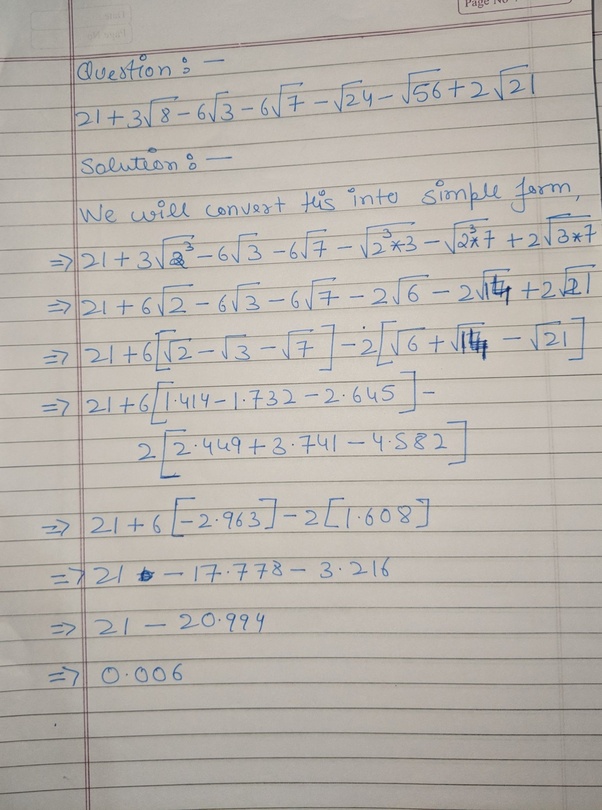 Page No
Question :-
21 + 3√8 - 6√3 - 6√7 - √24 - √56 + 2√21
Solution :-
We will convert this into simple form,
⇒ 21 + 3√2³ - 6√3 - 6√7 - √2³*3 - √2³*7 + 2√3*7
⇒ 21 + 6√2 - 6√3 - 6√7 - 2√6 - 2√14 + 2√21
⇒ 21 + 6[√2 - √3 - √7] - 2[√6 + √14 - √21]
⇒ 21 + 6[1.414 - 1.732 - 2.645] -
2[2.449 + 3.741 - 4.582]
⇒ 21 + 6[-2.963] - 2[1.608]
⇒ 21 - 17.778 - 3.216
⇒ 21 - 20.994
⇒ 0.006